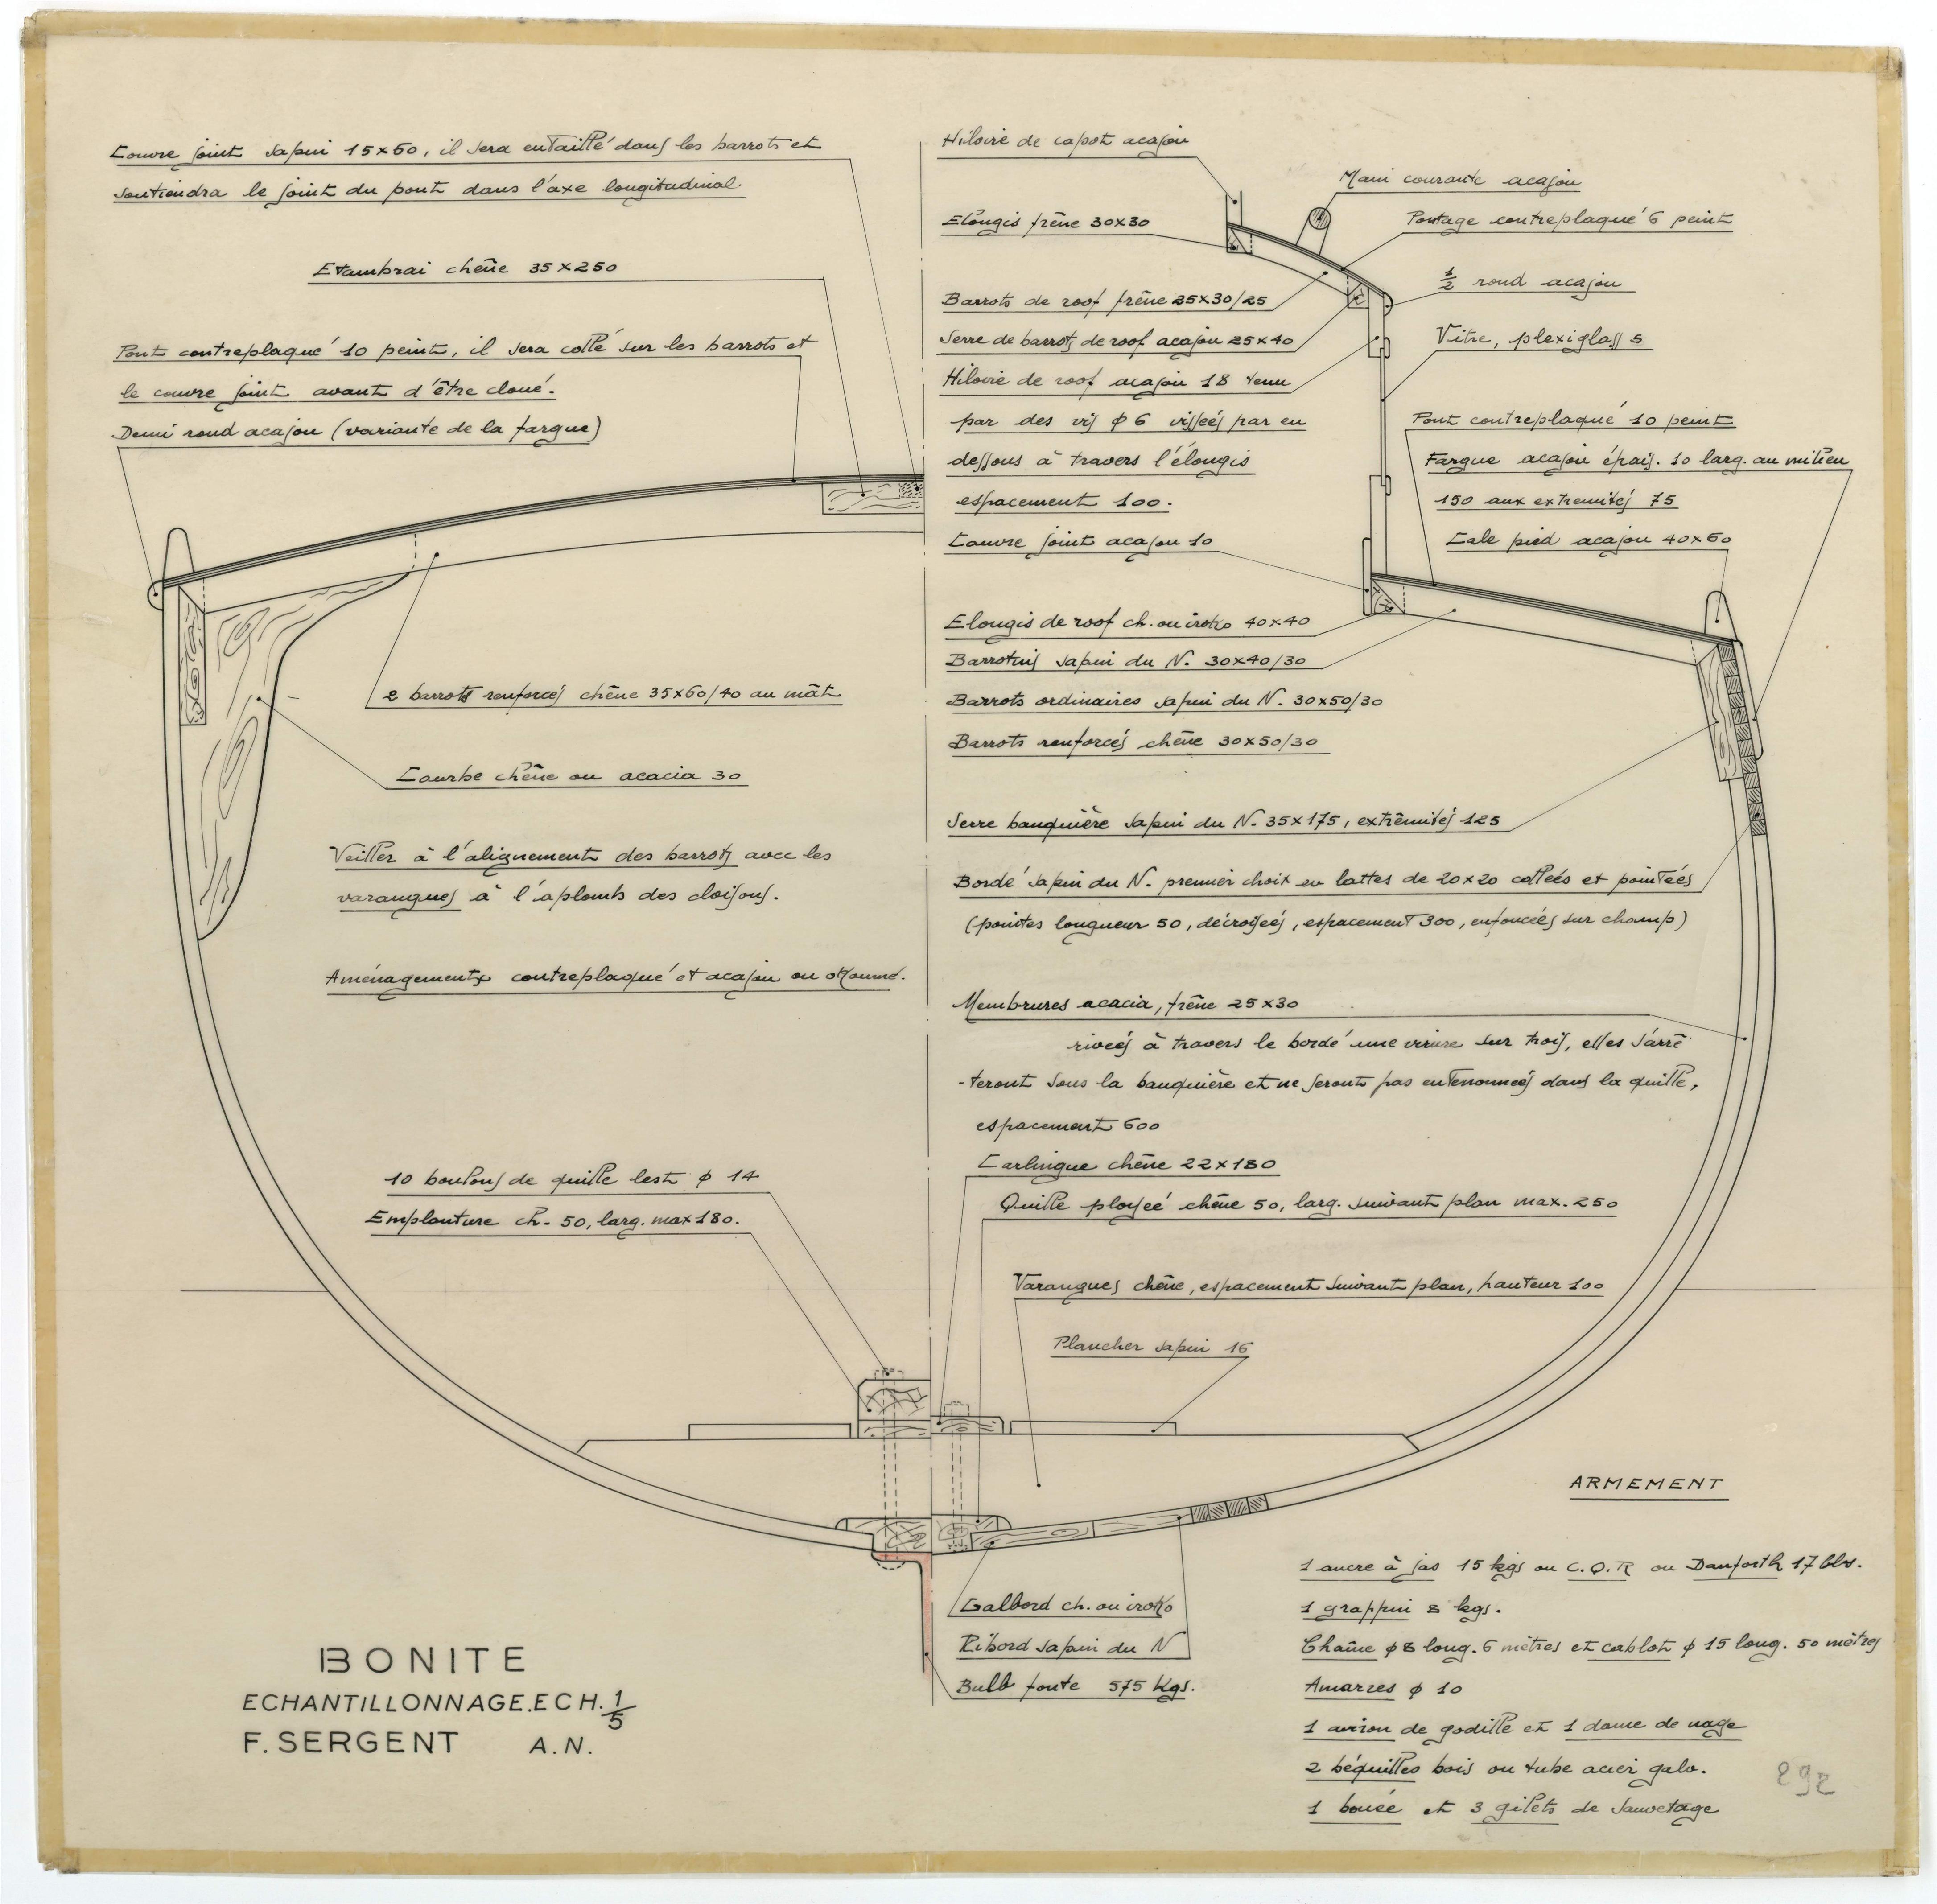 Couvre joint sapin 15x60, il sera entaillé dans les barrots et
soutiendra le joint du pont dans l'axe longitudinal.
Etambrai chêne 35x250
Pont contreplaqué 10 peint, il sera collé sur les barrots et
le couvre joint avant d'être cloué.
Demi rond acajou (variante de la fargue)
2 barrots renforcés chêne 35x60/40 au mât
Courbe chêne ou acacia 30
Veiller à l'alignement des barrots avec les
varangues à l'aplomb des cloisons.
Aménagements contreplaqué et acajou ou okoumé.
10 boulons de quille lest φ 14
Emplanture ch. 50, larg. max 180.
Hiloire de capot acajou
Elongis frêne 30x30
Barrots de roof frêne 25x30/25
Serre de barrots de roof acajou 25x40
Hiloire de roof acajou 18 tenu
par des vis φ 6 vissées par en
dessous à travers l'élongis
espacement 100.
Couvre joint acajou 10
Elongis de roof ch. ou iroko 40x40
Barrotins sapin du N. 30x40/30
Barrots ordinaires sapin du N. 30x50/30
Barrots renforcés chêne 30x50/30
Main courante acajou
Pontage contreplaqué 6 peint
1/2 rond acajou
Vitre, plexiglass 5
Pont contreplaqué 10 peint
Fargue acajou épais. 10 larg. au milieu
150 aux extremités 75
Cale pied acajou 40x60
Serre bauquière sapin du N. 35x175, extrêmités 125
Bordé sapin du N. premier choix en lattes de 20x20 collées et pointées
(pointes longueur 50, décroisées, espacement 300, enfoncées sur champ)
Membrures acacia, frêne 25x30
rivées à travers le bordé une virure sur trois, elles s'arrê
-teront sous la bauquière et ne seront pas entenonnées dans la quille,
espacement 600
Carlingue chêne 22x180
Quille ployée chêne 50, larg. suivant plan max. 250
Varangues chêne, espacement suivant plan, hauteur 100
Plancher sapin 16
Galbord ch. ou iroko
Ribord sapin du N
Bulb fonte 575 kgs.
BONITE
ECHANTILLONNAGE. ECH. 1/5
F. SERGENT A.N.
ARMEMENT
1 ancre à jas 15 kgs ou C.Q.R ou Danforth 17 lbs.
1 grappin 8 kgs.
Chaîne φ 8 long. 6 mètres et cablot φ 15 long. 50 mètres
Amarres φ 10
1 aviron de godille et 1 dame de nage
2 béquilles bois ou tube acier galv.
1 bouée et 3 gilets de sauvetage
292